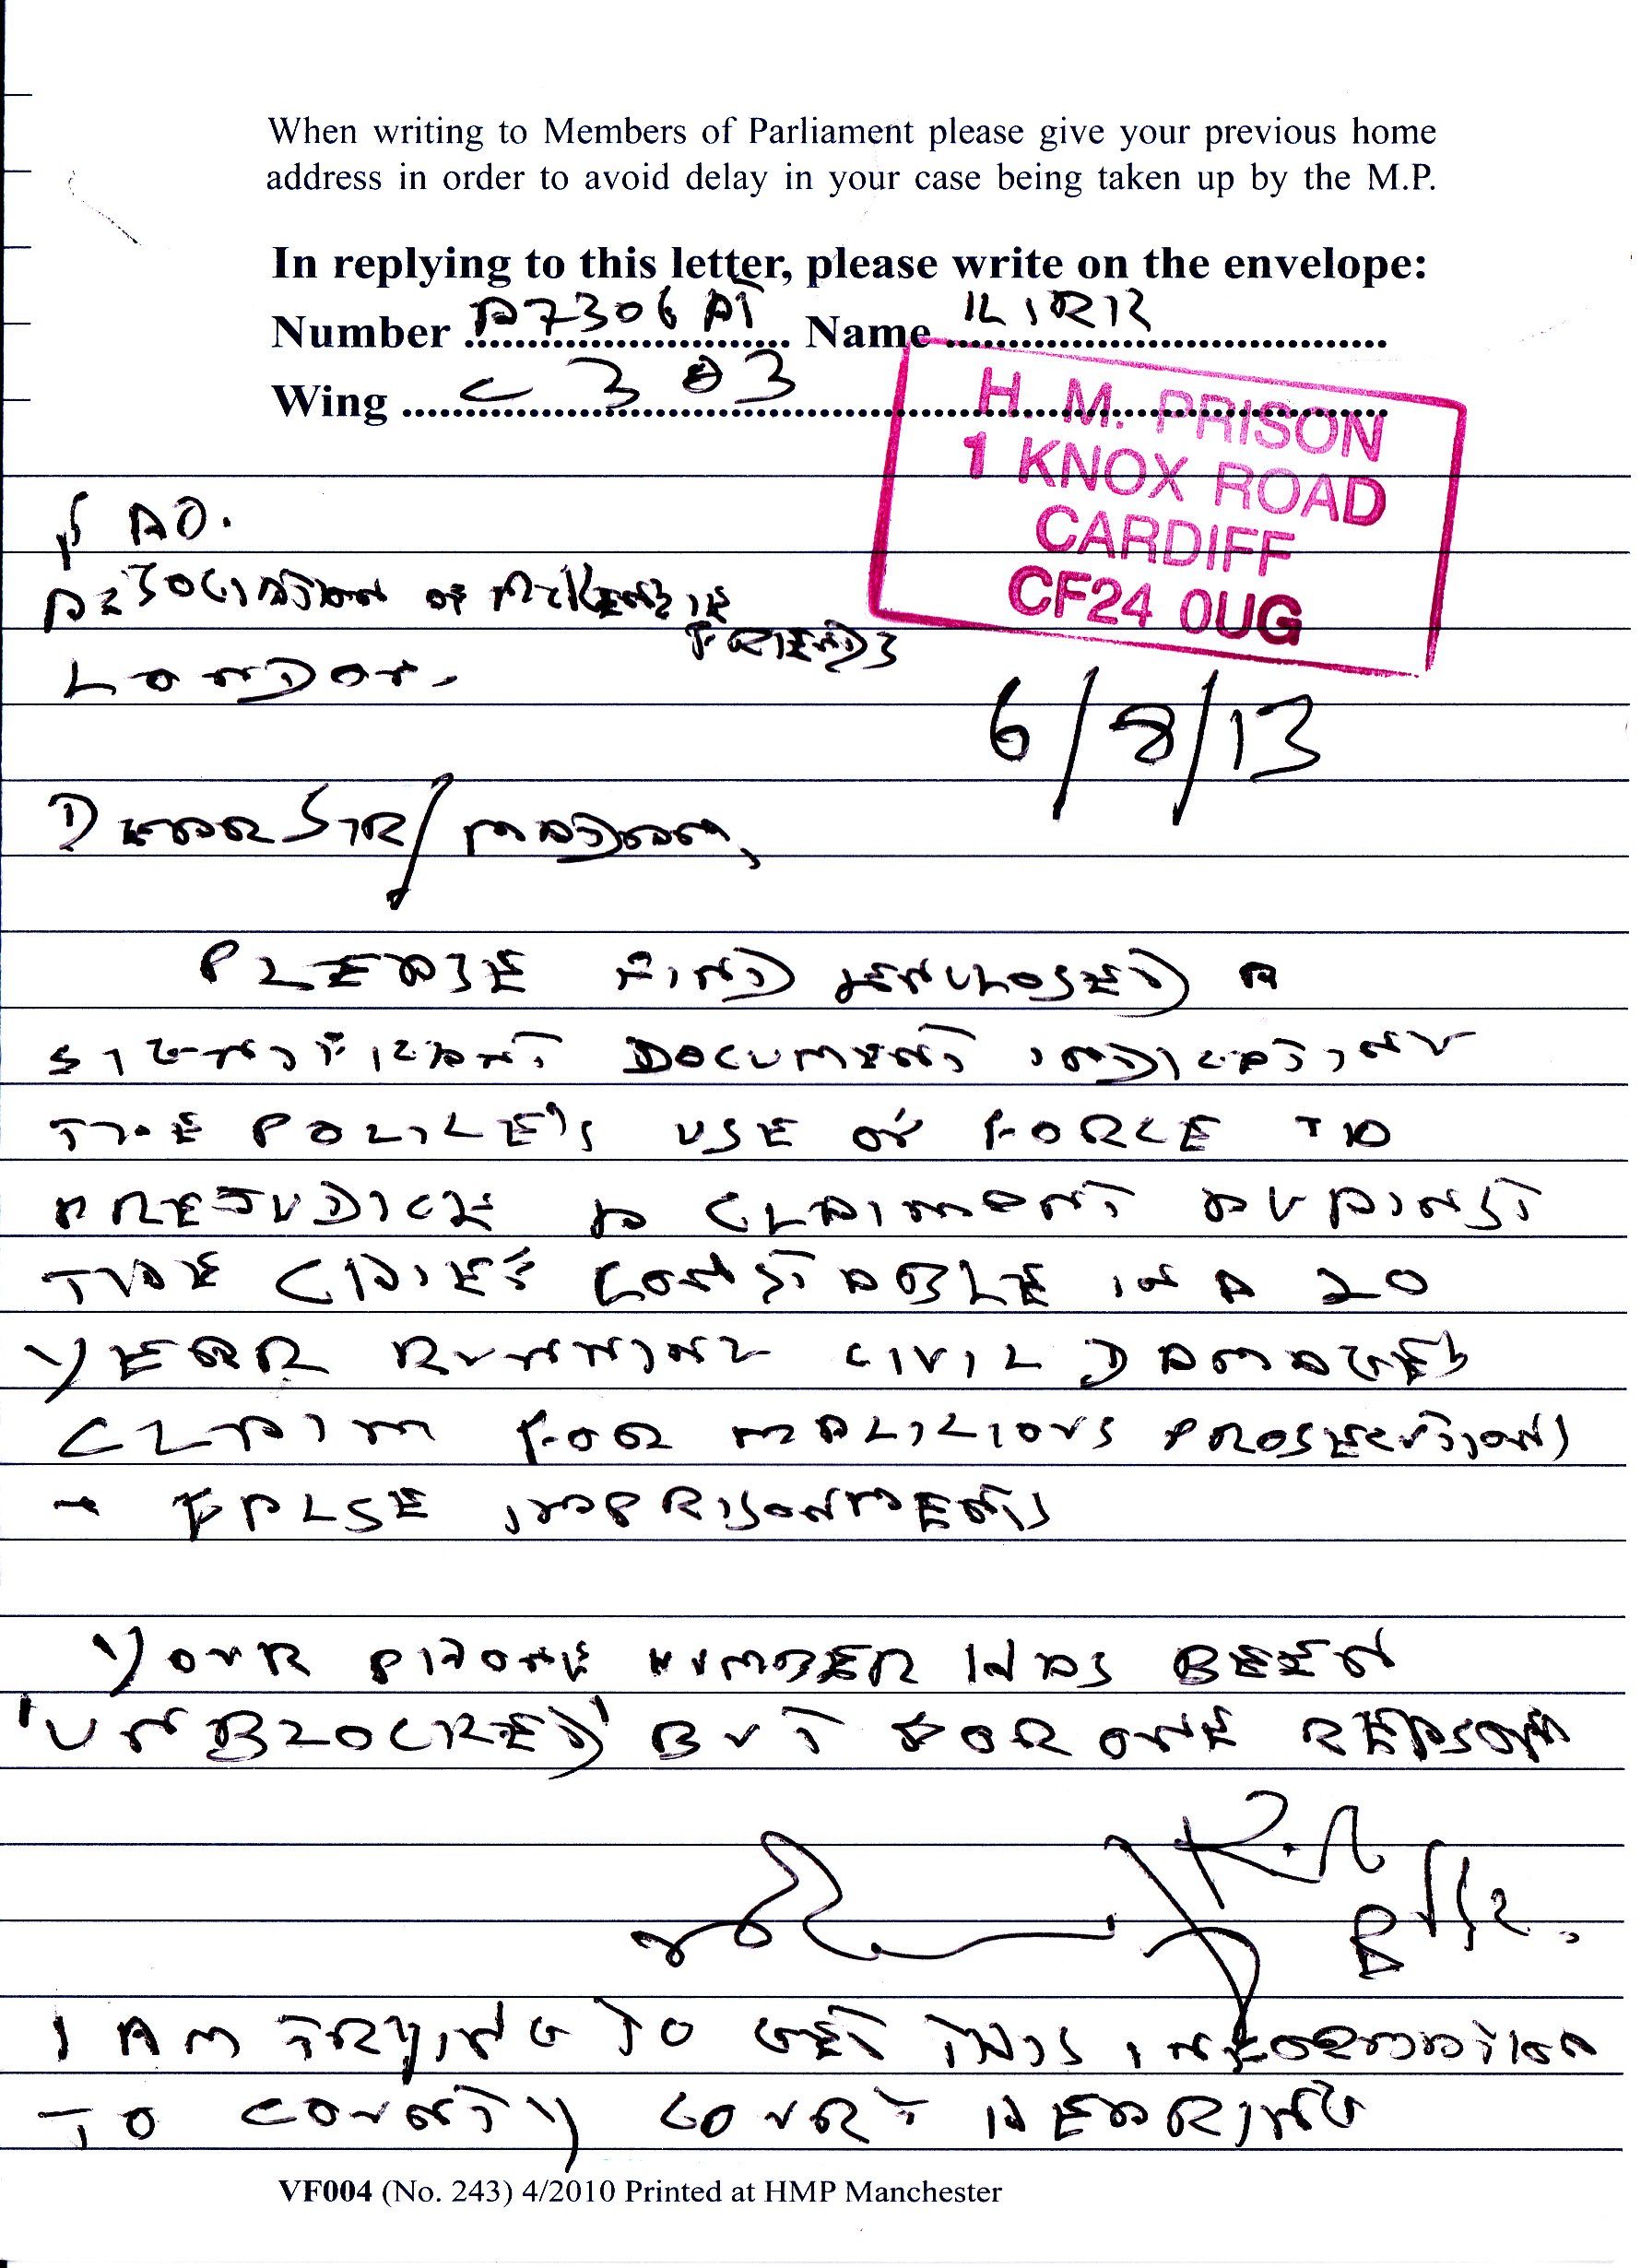 When writing to Members of Parliament please give your previous home
address in order to avoid delay in your case being taken up by the M.P.
In replying to this letter, please write on the envelope:
Number A7306AT Name KIRK
Wing C 303
H. M. PRISON
1 KNOX ROAD
CARDIFF
CF24 0UG
FAO.
ASSOCIATION OF McKENZIE
FRIENDS
LONDON.
6/8/13
DEAR SIR/MADAM,
PLEASE FIND ENCLOSED A
SIGNIFICANT DOCUMENT INDICATING
THE POLICE'S USE OF FORCE TO
PREJUDICE A CLAIMANT AGAINST
THE CHIEF CONSTABLE IN A 20
YEAR RUNNING CIVIL DAMAGES
CLAIM FOR MALICIOUS PROSECUTIONS
+ FALSE IMPRISONMENTS
YOUR PHONE NUMBER HAS BEEN
'UNBLOCKED' BUT FOR ONE REASON
I AM TRYING TO GET THIS INFORMATION
TO COUNTY COURT HEARING
VF004 (No. 243) 4/2010 Printed at HMP Manchester